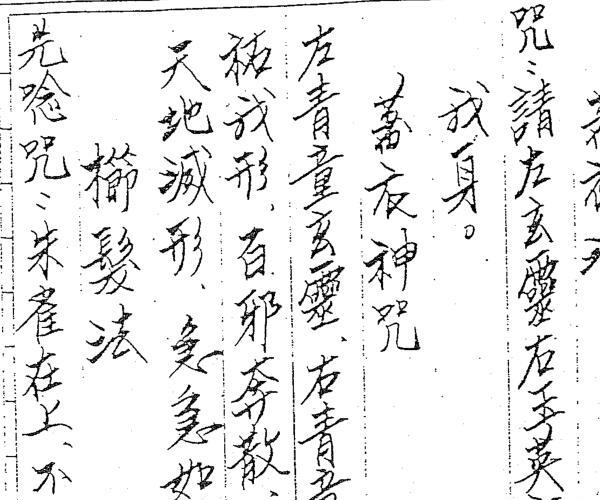 咒：請左玄靈右玉英
我身。
蓄衣神咒
左青童玄靈、右青童
祐我形，百邪奔散、
天地滅形、急急如
櫛髮法
先唸咒：朱雀在上、不